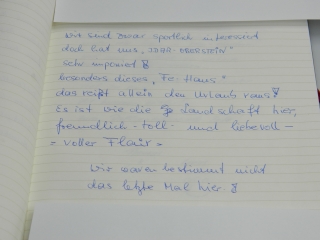 wir sind zwar sportlich interessiert
doch hat uns "IDAR-OBERSTEIN"
sehr imponiert!
besonders dieses "Fe-Haus"
das reißt allein den Urlaub raus!
Es ist wie die Landschaft hier,
freundlich - toll - und liebevoll -
= voller Flair =
Wir waren bestimmt nicht
das letzte Mal hier!